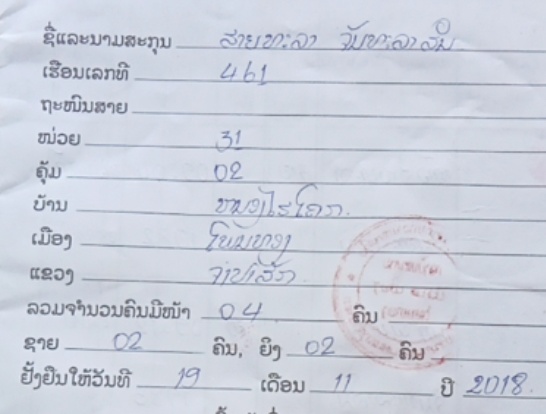 ຊື່ແລະນາມສະກຸນ ສາຍທະລາ ຈັນທະລາສົມ
ເຮືອນເລກທີ 461
ຖະໜົນສາຍ
ໜ່ວຍ 31
ຄຸ້ມ 02
ບ້ານ
ເມືອງ ໂພນທອງ
ແຂວງ ຈຳປາສັກ
ລວມຈຳນວນຄົນມີໜ້າ 04 ຄົນ
ຊາຍ 02 ຄົນ, ຍິງ 02 ຄົນ
ຢັ້ງຢືນໃຫ້ວັນທີ 19 ເດືອນ 11 ປີ 2018.